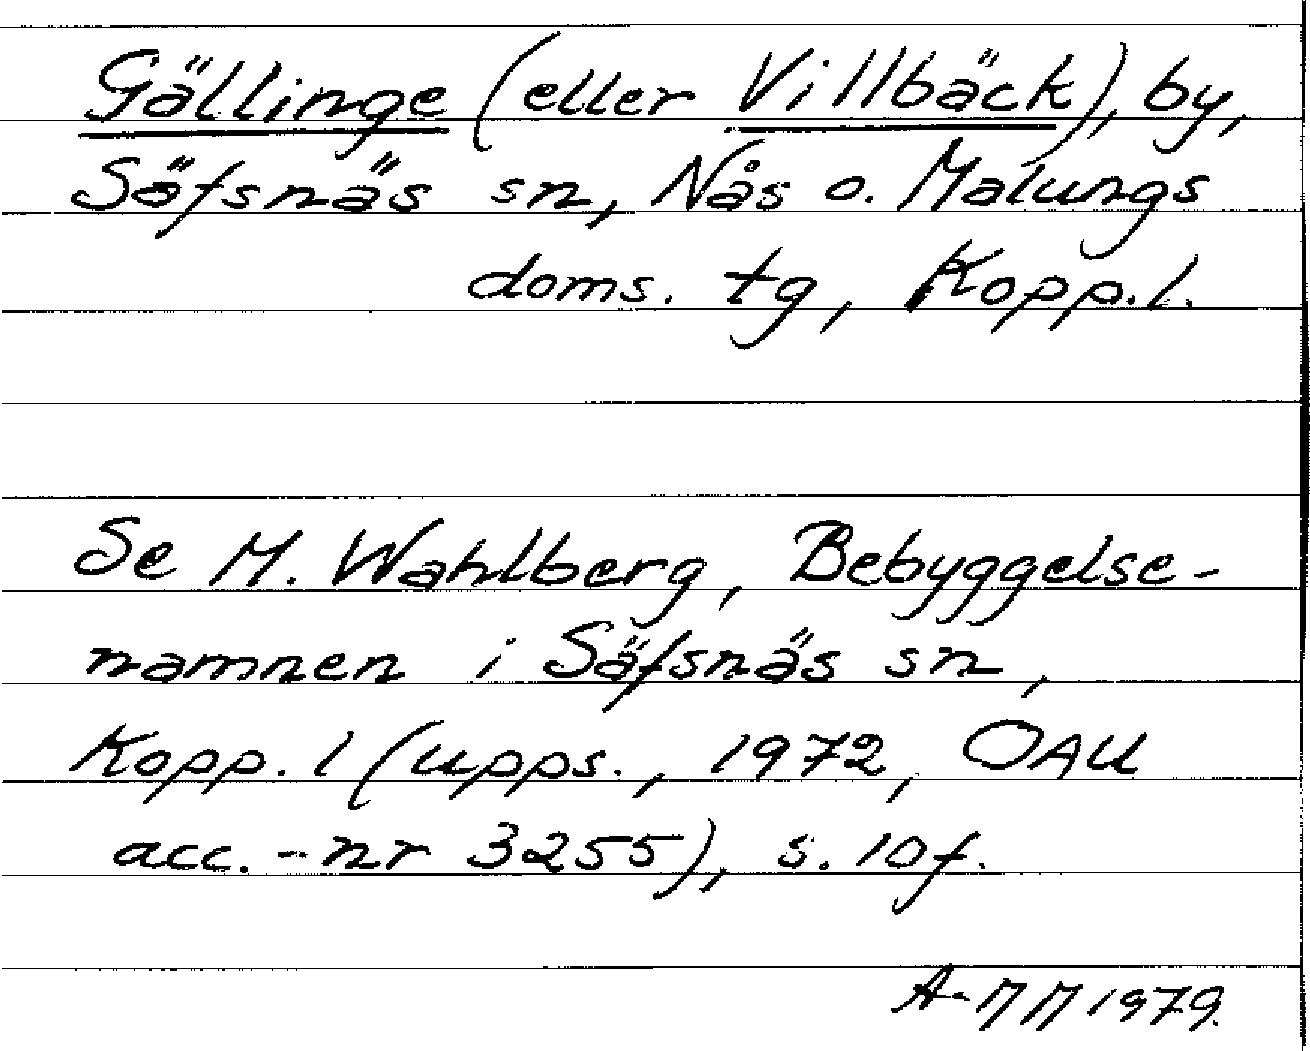 Gällinge (eller Villbäck), by,
Säfsnäs sn, Nås o. Malungs
doms. tg, Kopp. l.
Se M. Wahlberg, Bebyggelse-
namnen i Säfsnäs sn,
Kopp. l (upps., 1972, OAU
acc.-nr 3255), s. 10 f.
A-MM 1979.